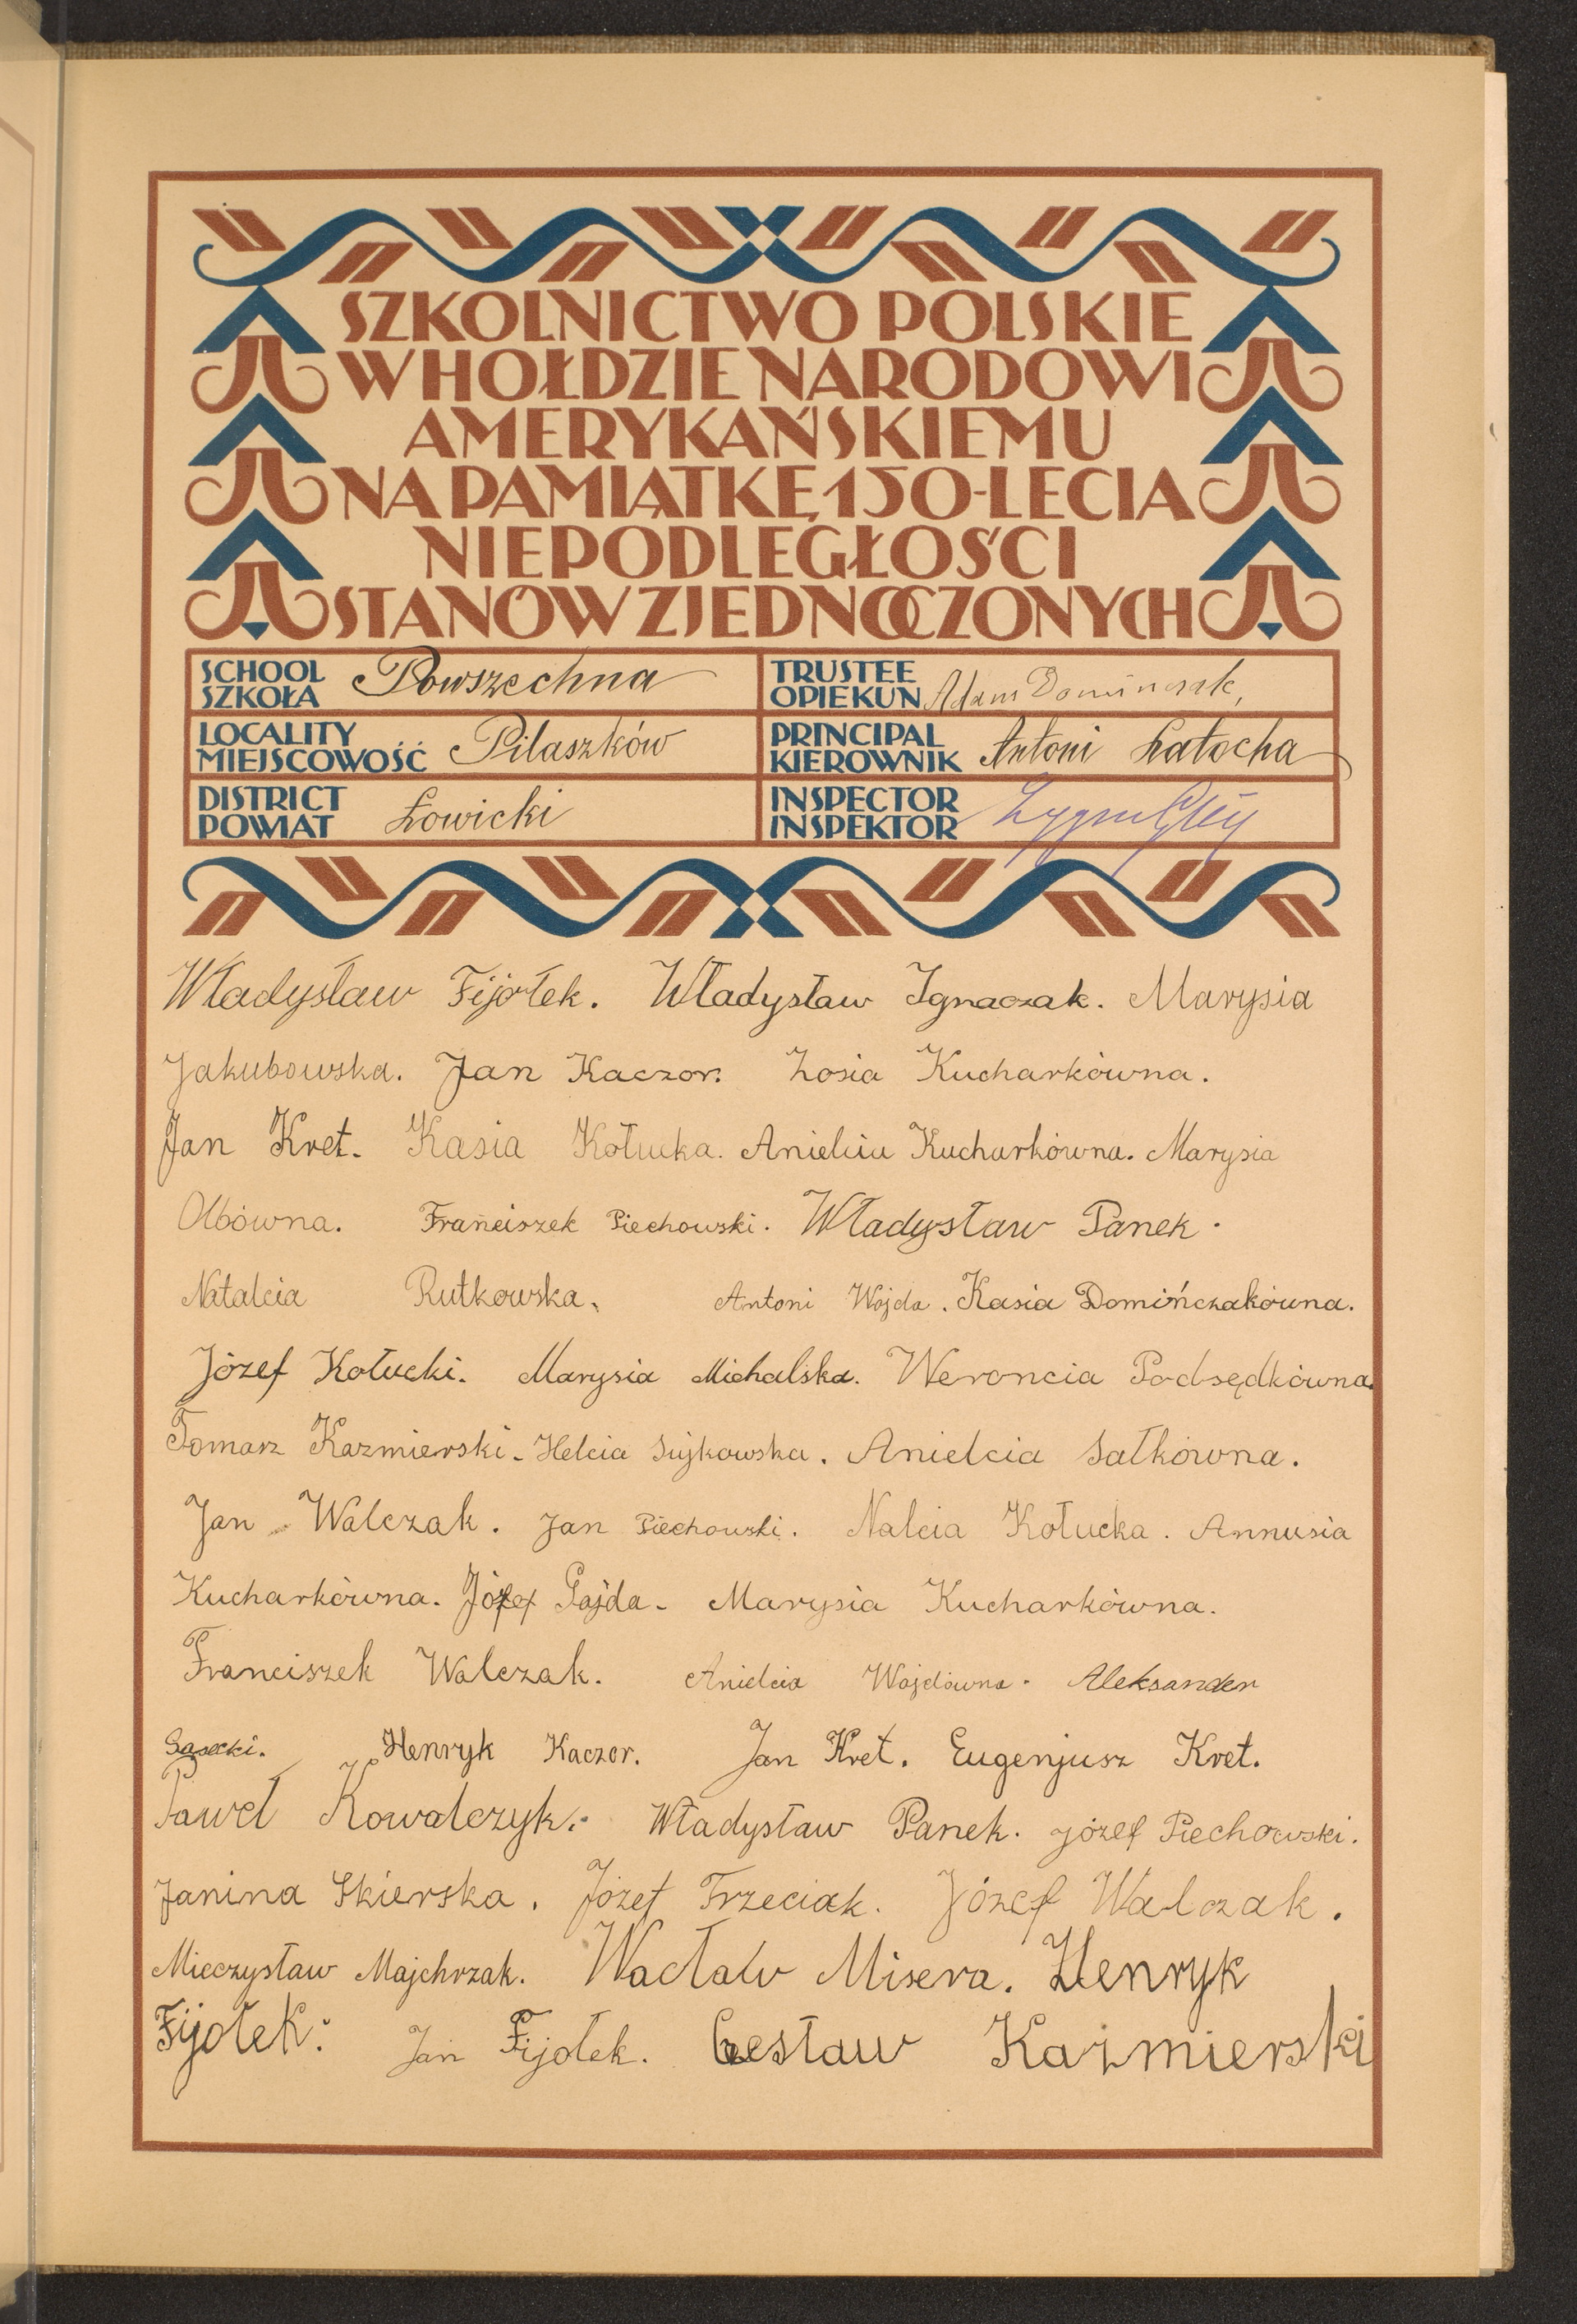 SZKOLNICTWO POLSKIE
W HOŁDZIE NARODOWI
AMERYKAŃSKIEMU
NA PAMIĄTKĘ 150-LECIA
NIEPODLEGŁOŚCI
STANÓW ZJEDNOCZONYCH
SCHOOL
SZKOŁA Powszechna
TRUSTEE
OPIEKUN Adam Dominczak,
LOCALITY
MIEJSCOWOŚĆ Pilaszków
PRINCIPAL
KIEROWNIK Antoni Łatocha
DISTRICT
POWIAT Łowicki
INSPECTOR
INSPEKTOR
Władysław Fijołek. Władysław Ignaczak. Marysia
Jakubowska. Jan Kaczor. Zosia Kucharkówna.
Jan Kret. Kasia Kołucka. Anielcia Kucharkówna. Marysia
Olbówna. Franciszek Piechowski. Władysław Panek.
Natalcia Rutkowska. Antoni Wojda. Kasia Domińczakówna.
Józef Kołucki. Marysia Michalska. Weroncia Podsędkówna.
Tomarz Kazmierski. Helcia Sujkowska. Anielcia Sałkówna.
Jan Walczak. Jan Piechowski. Nalcia Kołucka. Annusia
Kucharkówna. Józef Gajda. Marysia Kucharkówna.
Franciszek Walczak. Anielcia Wojdówna. Aleksander
Sasecki. Henryk Kaczor. Jan Kret. Eugenjusz Kret.
Paweł Kowalczyk. Władysław Panek. Józef Piechowski.
Janina Skierska. Józef Trzeciak. Józef Walczak.
Mieczysław Majchrzak. Wacław Misera. Henryk
Fijołek. Jan Fijołek. Czesław Kazmierski